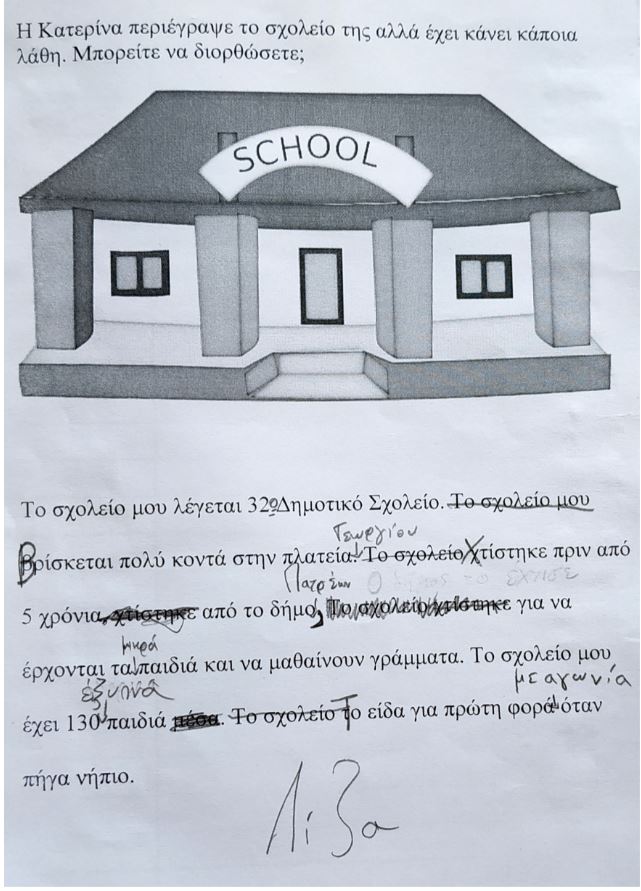 Η Κατερίνα περιέγραψε το σχολείο της αλλά έχει κάνει κάποια
λάθη. Μπορείτε να διορθώσετε;
SCHOOL
Το σχολείο μου λέγεται 32ο Δημοτικό Σχολείο. Το σχολείο μου
Γεωργίου
Βρίσκεται πολύ κοντά στην πλατεία. Το σχολείο Χτίστηκε πριν από
Πατρέων
5 χρόνια, χτίστηκε από το δήμο, Το σχολείο χτίστηκε για να
μικρά
έρχονται τα παιδιά και να μαθαίνουν γράμματα. Το σχολείο μου
έξυπνα με αγωνία
έχει 130 παιδιά μέσα. Το σχολείο Το είδα για πρώτη φορά όταν
πήγα νήπιο.
Λίζα